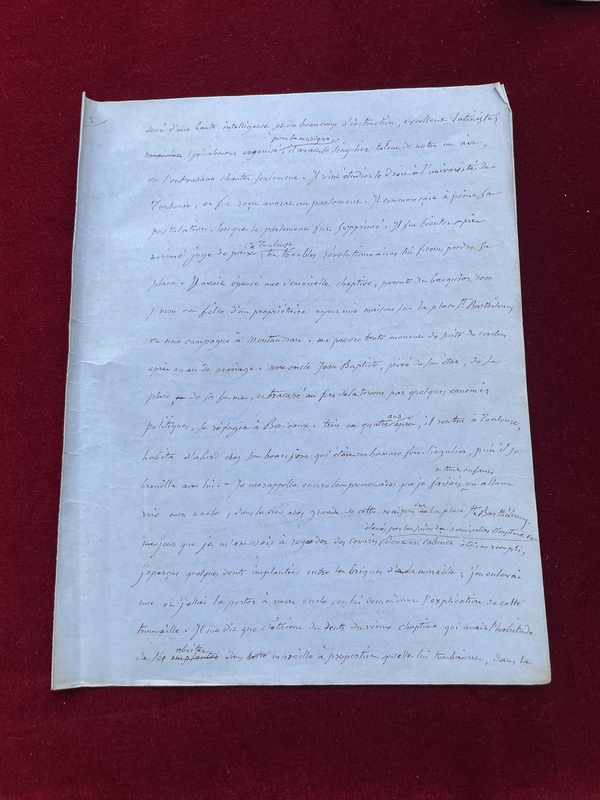 3
doué d'une haute intelligence, et de beaucoup d'instruction, excellent latiniste,
spécialement organisé pour la musique, il avait le singulier talent de noter un air,
en l'entendant chanter seulement. Il vint étudier le droit à l'université de
Toulouse, et fut reçu avocat au parlement. Il commençait à peine sa
postulation, lorsque le parlement fut supprimé. Il fut bientôt après
nommé juge de paix à Toulouse; les troubles révolutionnaires lui firent perdre sa
place. Il avait épousé une demoiselle Chaptive, parente du banquier de ce
nom et fille d'un propriétaire ayant une maison sur la place St. Barthélemy
et une campagne à Montaudran. ma pauvre tante mourut de suite de couches
après un an de mariage. mon oncle Jean Baptiste, privé de son état, de sa
place de sa femme, et tracassé au sujet de la terreur par quelques ennemis
politiques, se réfugia à Bordeaux. trois ou quatre ans après, il rentra à Toulouse,
habita d'abord chez son beau-père qui était un homme fort singulier, puis il se
brouilla avec lui. Je me rappelle encore les promenades que je faisais étant enfant en allant
voir mon oncle, dans la cour assez grande de cette maison de la place St. Barthélemy.
un jour que je m'amusais à regarder des dont un cabinet était rempli,
j'aperçus quelques dents implantées entre les briques de la muraille; j'en enlevai
une et j'allai la porter à mon oncle, en lui demandant l'explication de cette
trouvaille. Il me dit que c'étaient des dents du vieux Chaptive qui avait l'habitude
de les abriter dans cette muraille à proportion qu'elles lui tombaient, dans la